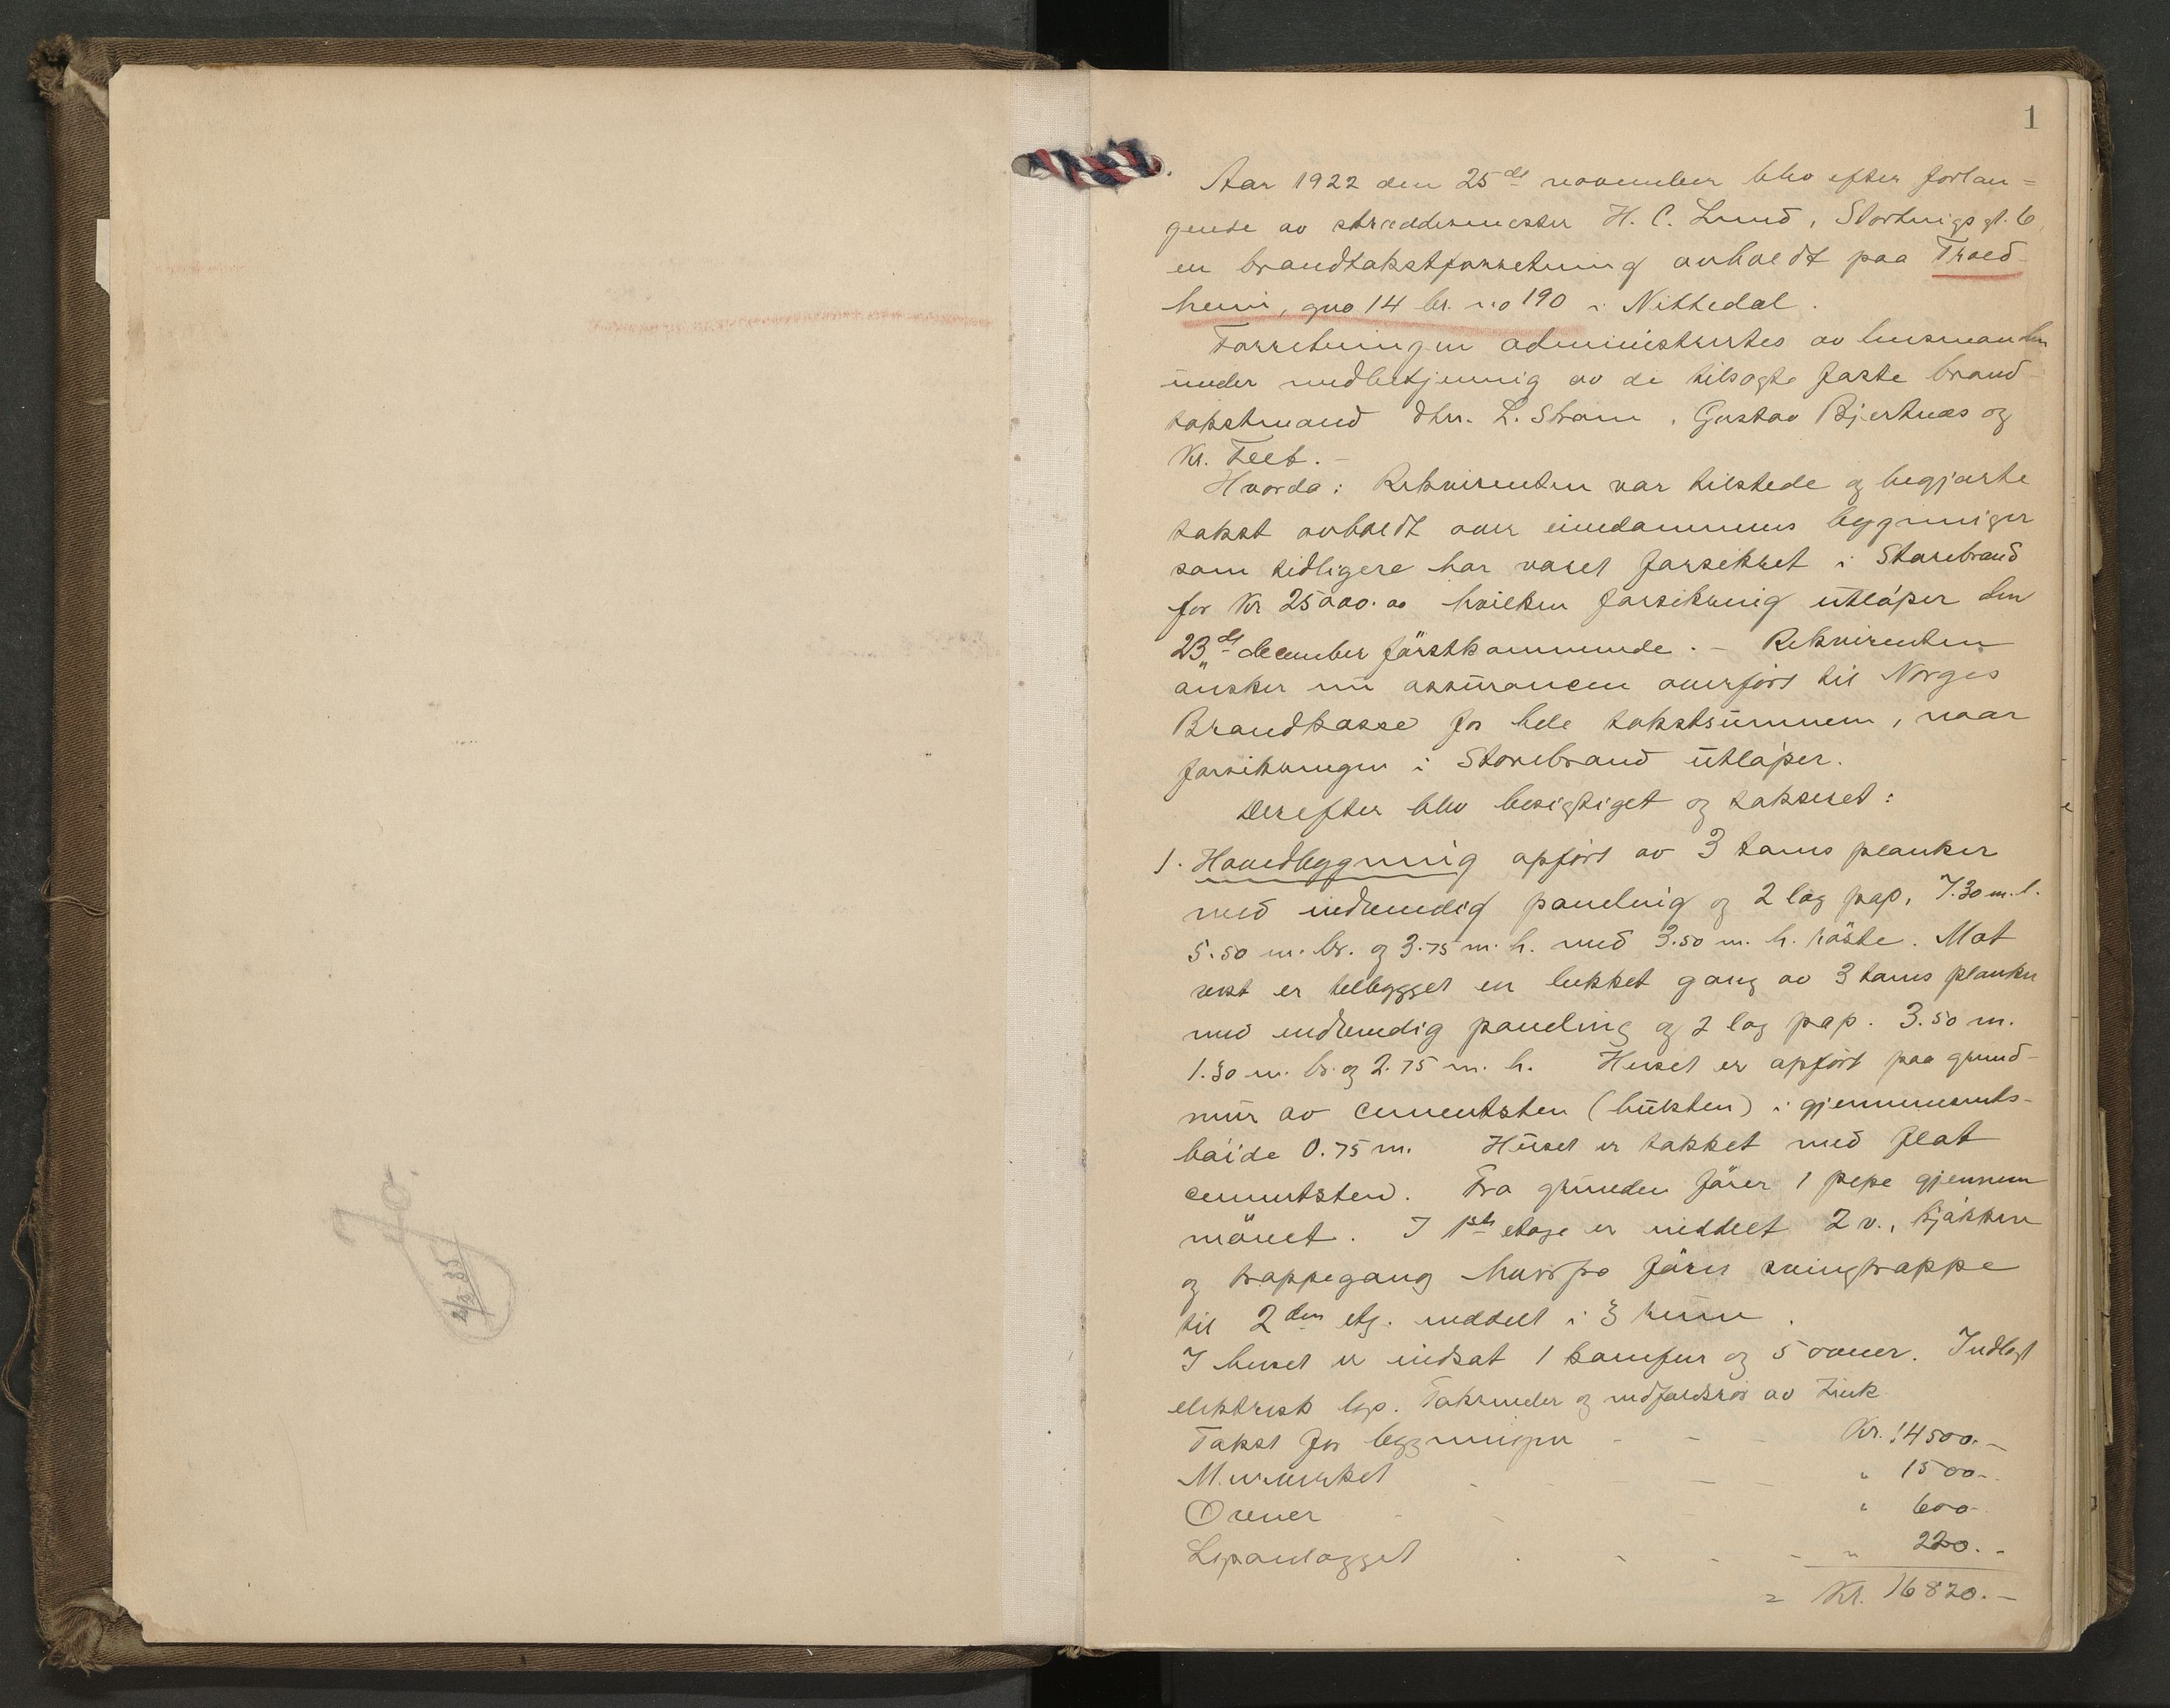 1
Aar 1922 den 25de november blev efter forlan=
gende av skræddermester H. C. Lund, Stortingsgt. 6,
en brandtakstforretning avholdt paa Traed-
heim, gno 14 br. no 190 i Nittedal.
Forretningen administrertes av lensmanden
under medbetjening av de tilsagte faste brand-
takstmænd dhrr. L. Strøm, Gustav Bjertnæs og
Kr. Teet.-
Hvorda: Rekvirenten var tilstede og begjærte
takst avholdt over eiendommens bygninger
som tidligere har været forsikret i Storebrand
for Kr 25000.00 hvilken forsikring utløper den
23de december førstkommende. - Rekvirenten
ønsker nu assurancen overført til Norges
Brandkasse for hele takstsummen, naar
forsikringen i Storebrand utløper.
Derefter blev besigtiget og takseret:
1. Hovedbygning opført av 3 toms planker
med indvendig paneling og 2 lag pap, 7.30 m. l.
5.50 m. br. og 3.75 m. h. med 3.50 m. h. røste. Mot
vest er tilbygget en lukket gang av 3 toms planker
med indvendig paneling og 2 lag pap. 3.50 m.
1.30 m. br. og 2.75 m. h. Huset er opført paa grund-
mur av cementsten (hulsten) i gjennemsnits-
høide 0.75 m. Huset er takket med flat
cementsten. Fra grunden fører 1 pipe gjennem
mønet. I 1ste etage er inddelt 2 v., kjøkken
og trappegang hvorfra fører svingtrappe
til 2den etg. inddelt i 3 rum.
I huset er indsat 1 komfur og 5 ovner. Indlagt
elektrisk lys. Takrender og nedfaldsrør av zink
Takst for bygningen - - - Kr. 14500.-
Murverket - - - " 1500.-
Ovner - - - " 600-
Lysanlægget - - - " 220.-
= Kr. 16820.-